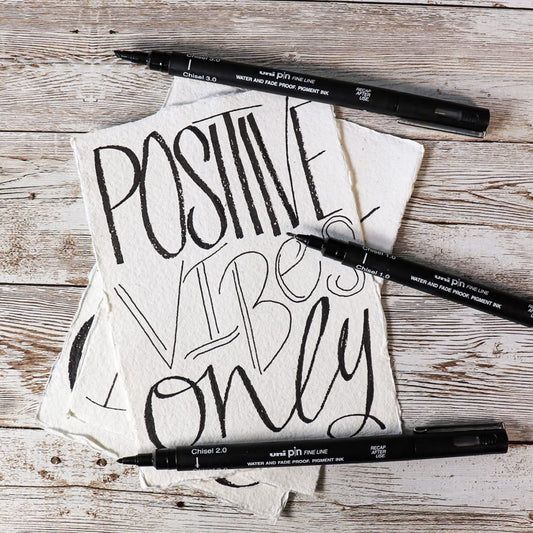 Chisel 3.0
Chisel 3.0
uni pin FINE LINE
WATER AND FADE PROOF, PIGMENT INK
RECAP
AFTER
USE.
POSITIVE
VIBES
only
Chisel 1.0
Chisel 1.0
uni pin FINE LINE
WATER AND FADE PROOF, PIGMENT INK
Chisel 2.0
uni pin FINE LINE
WATER AND FADE PROOF, PIGMENT INK
RECAP
AFTER
USE.